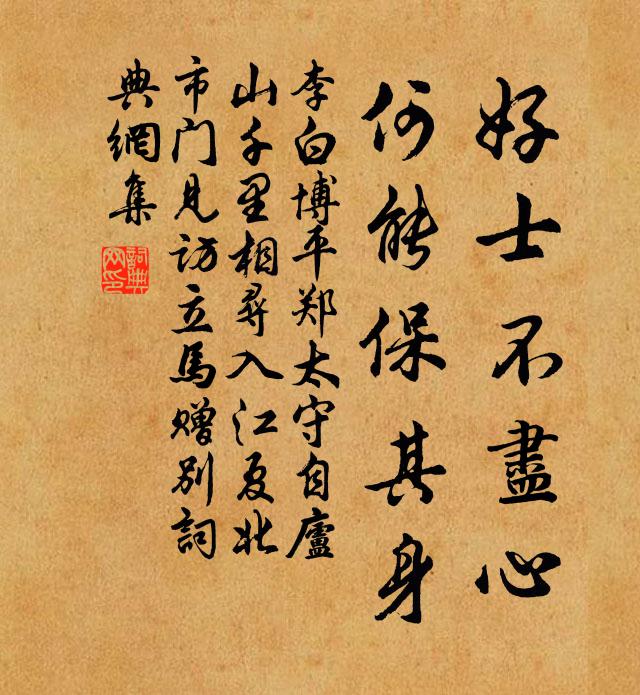 好士不盡心
何能保其身
李白博平郑太守自廬
山千里相尋入江夏北
市门見访立馬赠别詞
典網集
詞典
网印